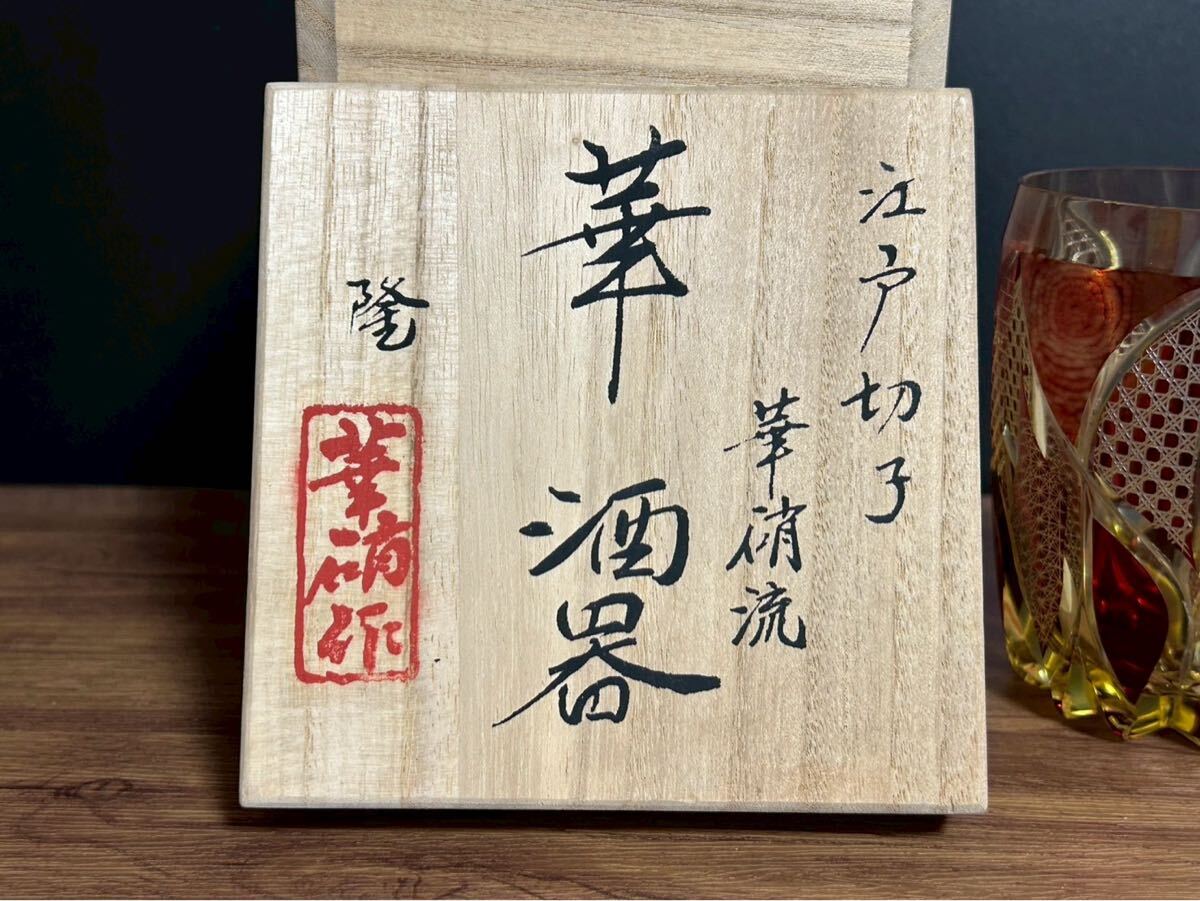 江戸切子
華硝流
華酒器
隆
華硝作